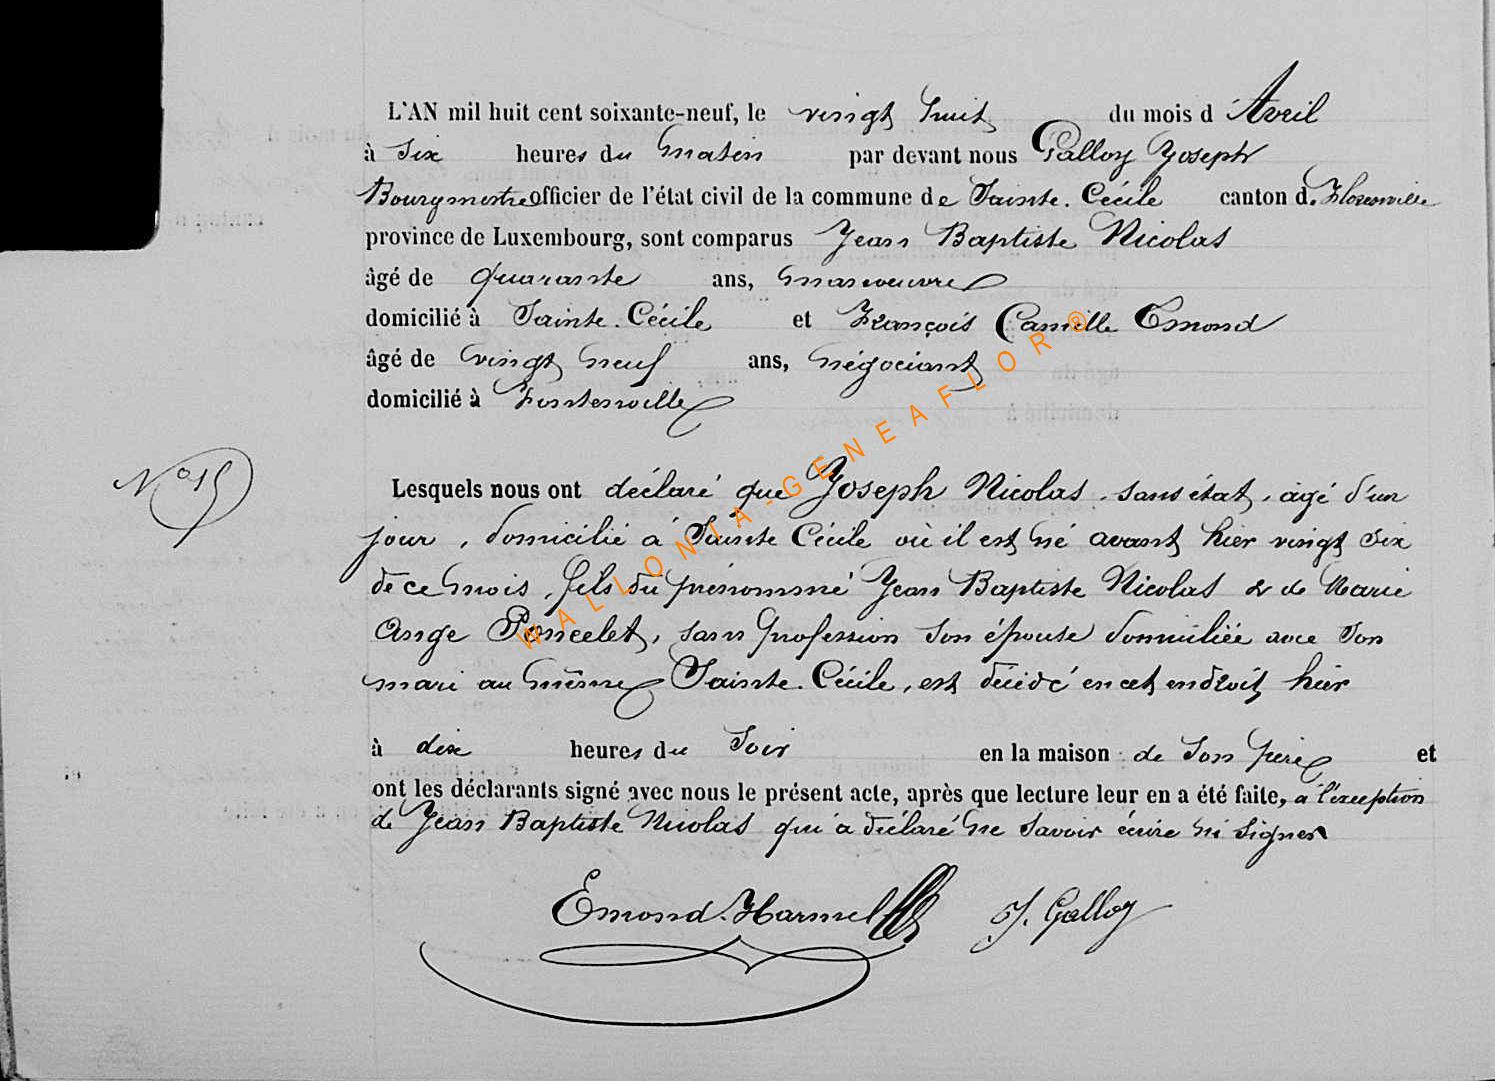 L'AN mil huit cent soixante-neuf, le vingt huit du mois d'Avril
à Six heures du matin par devant nous Galloy Joseph
Bourgmestre officier de l'état civil de la commune de Sainte. Cécile canton d. Florenville
province de Luxembourg, sont comparus Jean Baptiste Nicolas
âgé de quarante ans, manoeuvre
domicilié à Sainte. Cécile et François Camille Emond
âgé de vingt neuf ans, négociant
domicilié à Fontenoille
N° 15
Lesquels nous ont déclaré que Joseph Nicolas, sans état, âgé d'un
jour, domicilié à Sainte Cécile où il est né avant hier vingt six
de ce mois, fils du prénommé Jean Baptiste Nicolas & de Marie
Ange Poncelet, sans profession son épouse domiciliée avec son
mari au même Sainte. Cécile, est décédé en cet endroit hier
à dix heures du Soir en la maison de son père et
ont les déclarants signé avec nous le présent acte, après que lecture leur en a été faite, à l'exception
de Jean Baptiste Nicolas qui a déclaré ne savoir écrire ni signer
Emond. Harmel J. Galloy
WALLONIA-GENEAFLOR®